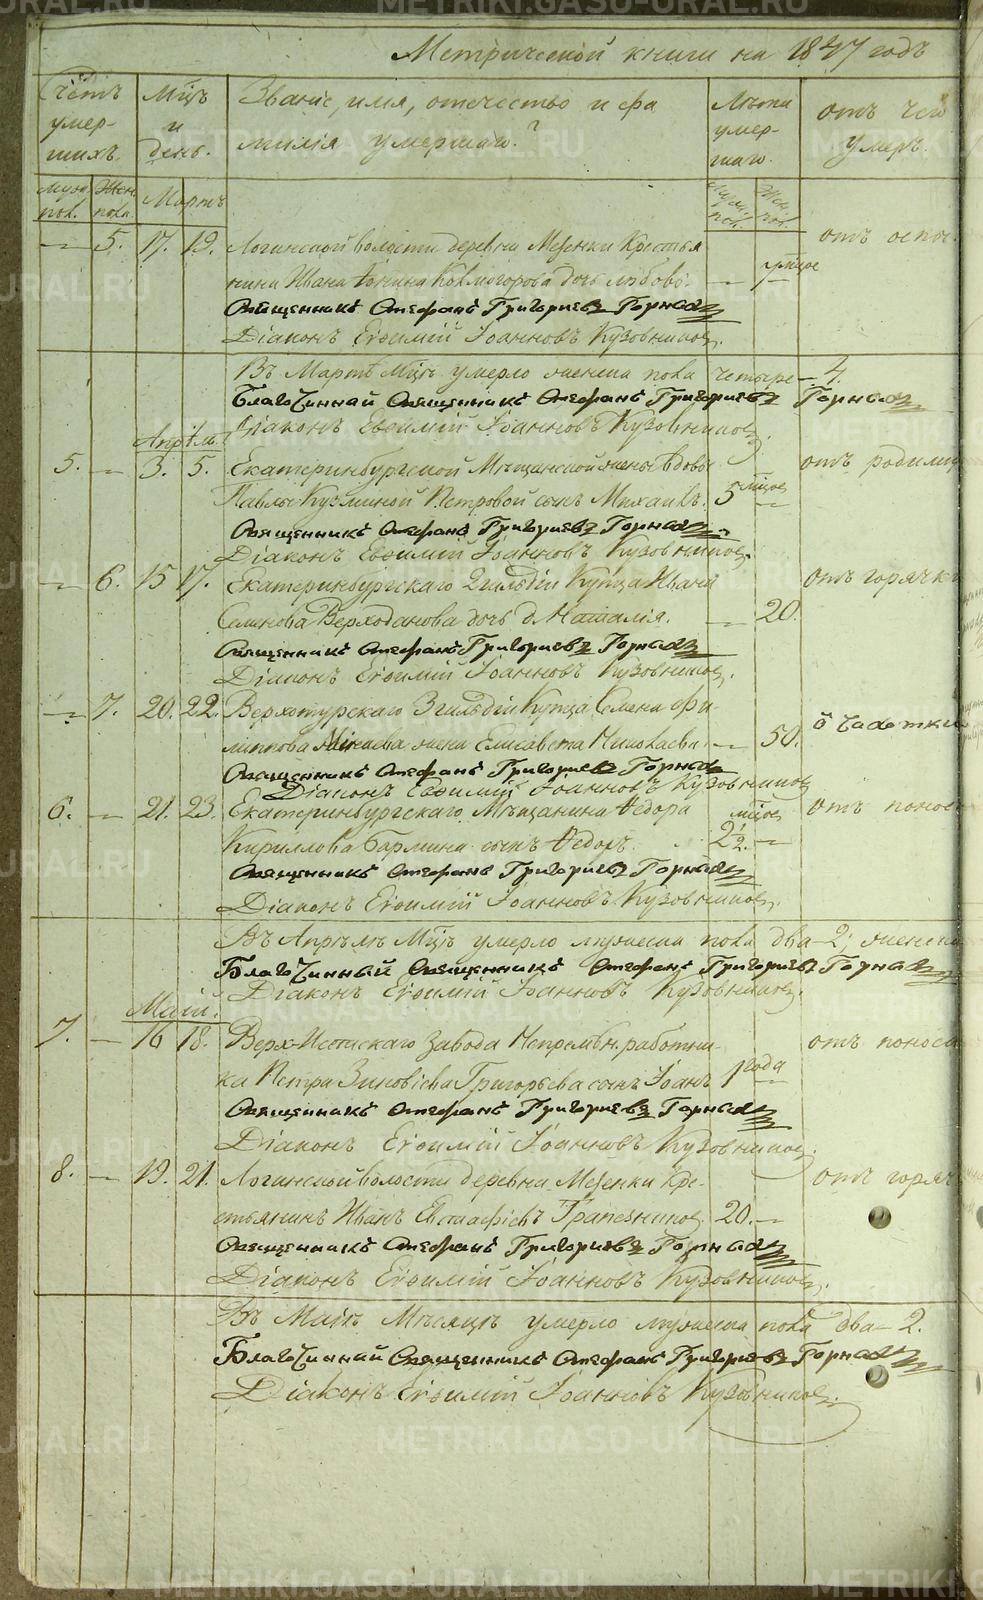 Метрической книги на 1847 годъ
Счетъ умер-шихъ.
Мцъ и день.
Званіе, имя, отечество и фа
милія умершаго?
Лѣта умер-шаго.
отъ чего умеръ.
Муж. пол.
Жен. пола.
Мартъ
Муж. пол.
Жен. пол.
— 5. 17. 19. Логинской волости деревни Мезенки Крестья отъ оспы.
нина Ивана Колмогорова дочь Любовь. —
Священникъ Стефанъ Григорьевъ Горныхъ
Діаконъ Евфимій Іоанновъ Кузовниковъ.
Въ Мартѣ Мцѣ умерло женска пола четыре — 4.
Благочинный Священникъ Стефанъ Григорьевъ Горныхъ
Діаконъ Евфимій Іоанновъ Кузовниковъ.
Апрѣль
5. — 3. 5. Екатеринбургской Мѣщанской жены вдовы отъ родимц
Павлы Кузьминой Петровой сынъ Михаилъ. 5 мцов —
Священникъ Стефанъ Григорьевъ Горныхъ
Діаконъ Евфимій Іоанновъ Кузовниковъ.
— 6. 15 17. Екатеринбургскаго 2 гильдіи Купца Ивана отъ горячки
Верходанова дочь д. Наталія. — 20.
Священникъ Стефанъ Григорьевъ Горныхъ
Діаконъ Евфимій Іоанновъ Кузовниковъ.
— 7. 20. 22. Верхотурскаго 3 гильдіи Купца Семена Фи- ѿ чахотки
липпова жена Елисавета Николаева. — 50.
Священникъ Стефанъ Григорьевъ Горныхъ
Діаконъ Евфимій Іоанновъ Кузовниковъ
6. — 21. 23. Екатеринбургскаго Мѣщанина Ѳедора мцов отъ понос
Кириллова сынъ Ѳедоръ. 2½. —
Священникъ Стефанъ Григорьевъ Горныхъ
Діаконъ Евфимій Іоанновъ Кузовниковъ.
Въ Апрѣлѣ Мцѣ умерло мужеска пола два — 2; женска
Благочинный Священникъ Стефанъ Григорьевъ Горныхъ
Діаконъ Евфимій Іоанновъ Кузовниковъ.
Маій.
7. — 16 18. Верх-Исетскаго завода Непремѣн. работни- отъ поноса
ка Петра Зиновіева Григорьева сынъ Іоанъ 1 года —
Священникъ Стефанъ Григорьевъ Горныхъ
Діаконъ Евфимій Іоанновъ Кузовниковъ.
8. — 19. 21. Логинской волости деревни Мезенки Кре- отъ горяч
стьянинъ Иванъ Евстафіевъ Трапезниковъ 20. —
Священникъ Стефанъ Григорьевъ Горныхъ
Діаконъ Евфимій Іоанновъ Кузовниковъ.
Въ Маіѣ Мѣсяцѣ умерло мужеска пола два — 2.
Благочинный Священникъ Стефанъ Григорьевъ Горныхъ
Діаконъ Евфимій Іоанновъ Кузовниковъ.
METRIKI.GASO-URAL.RU